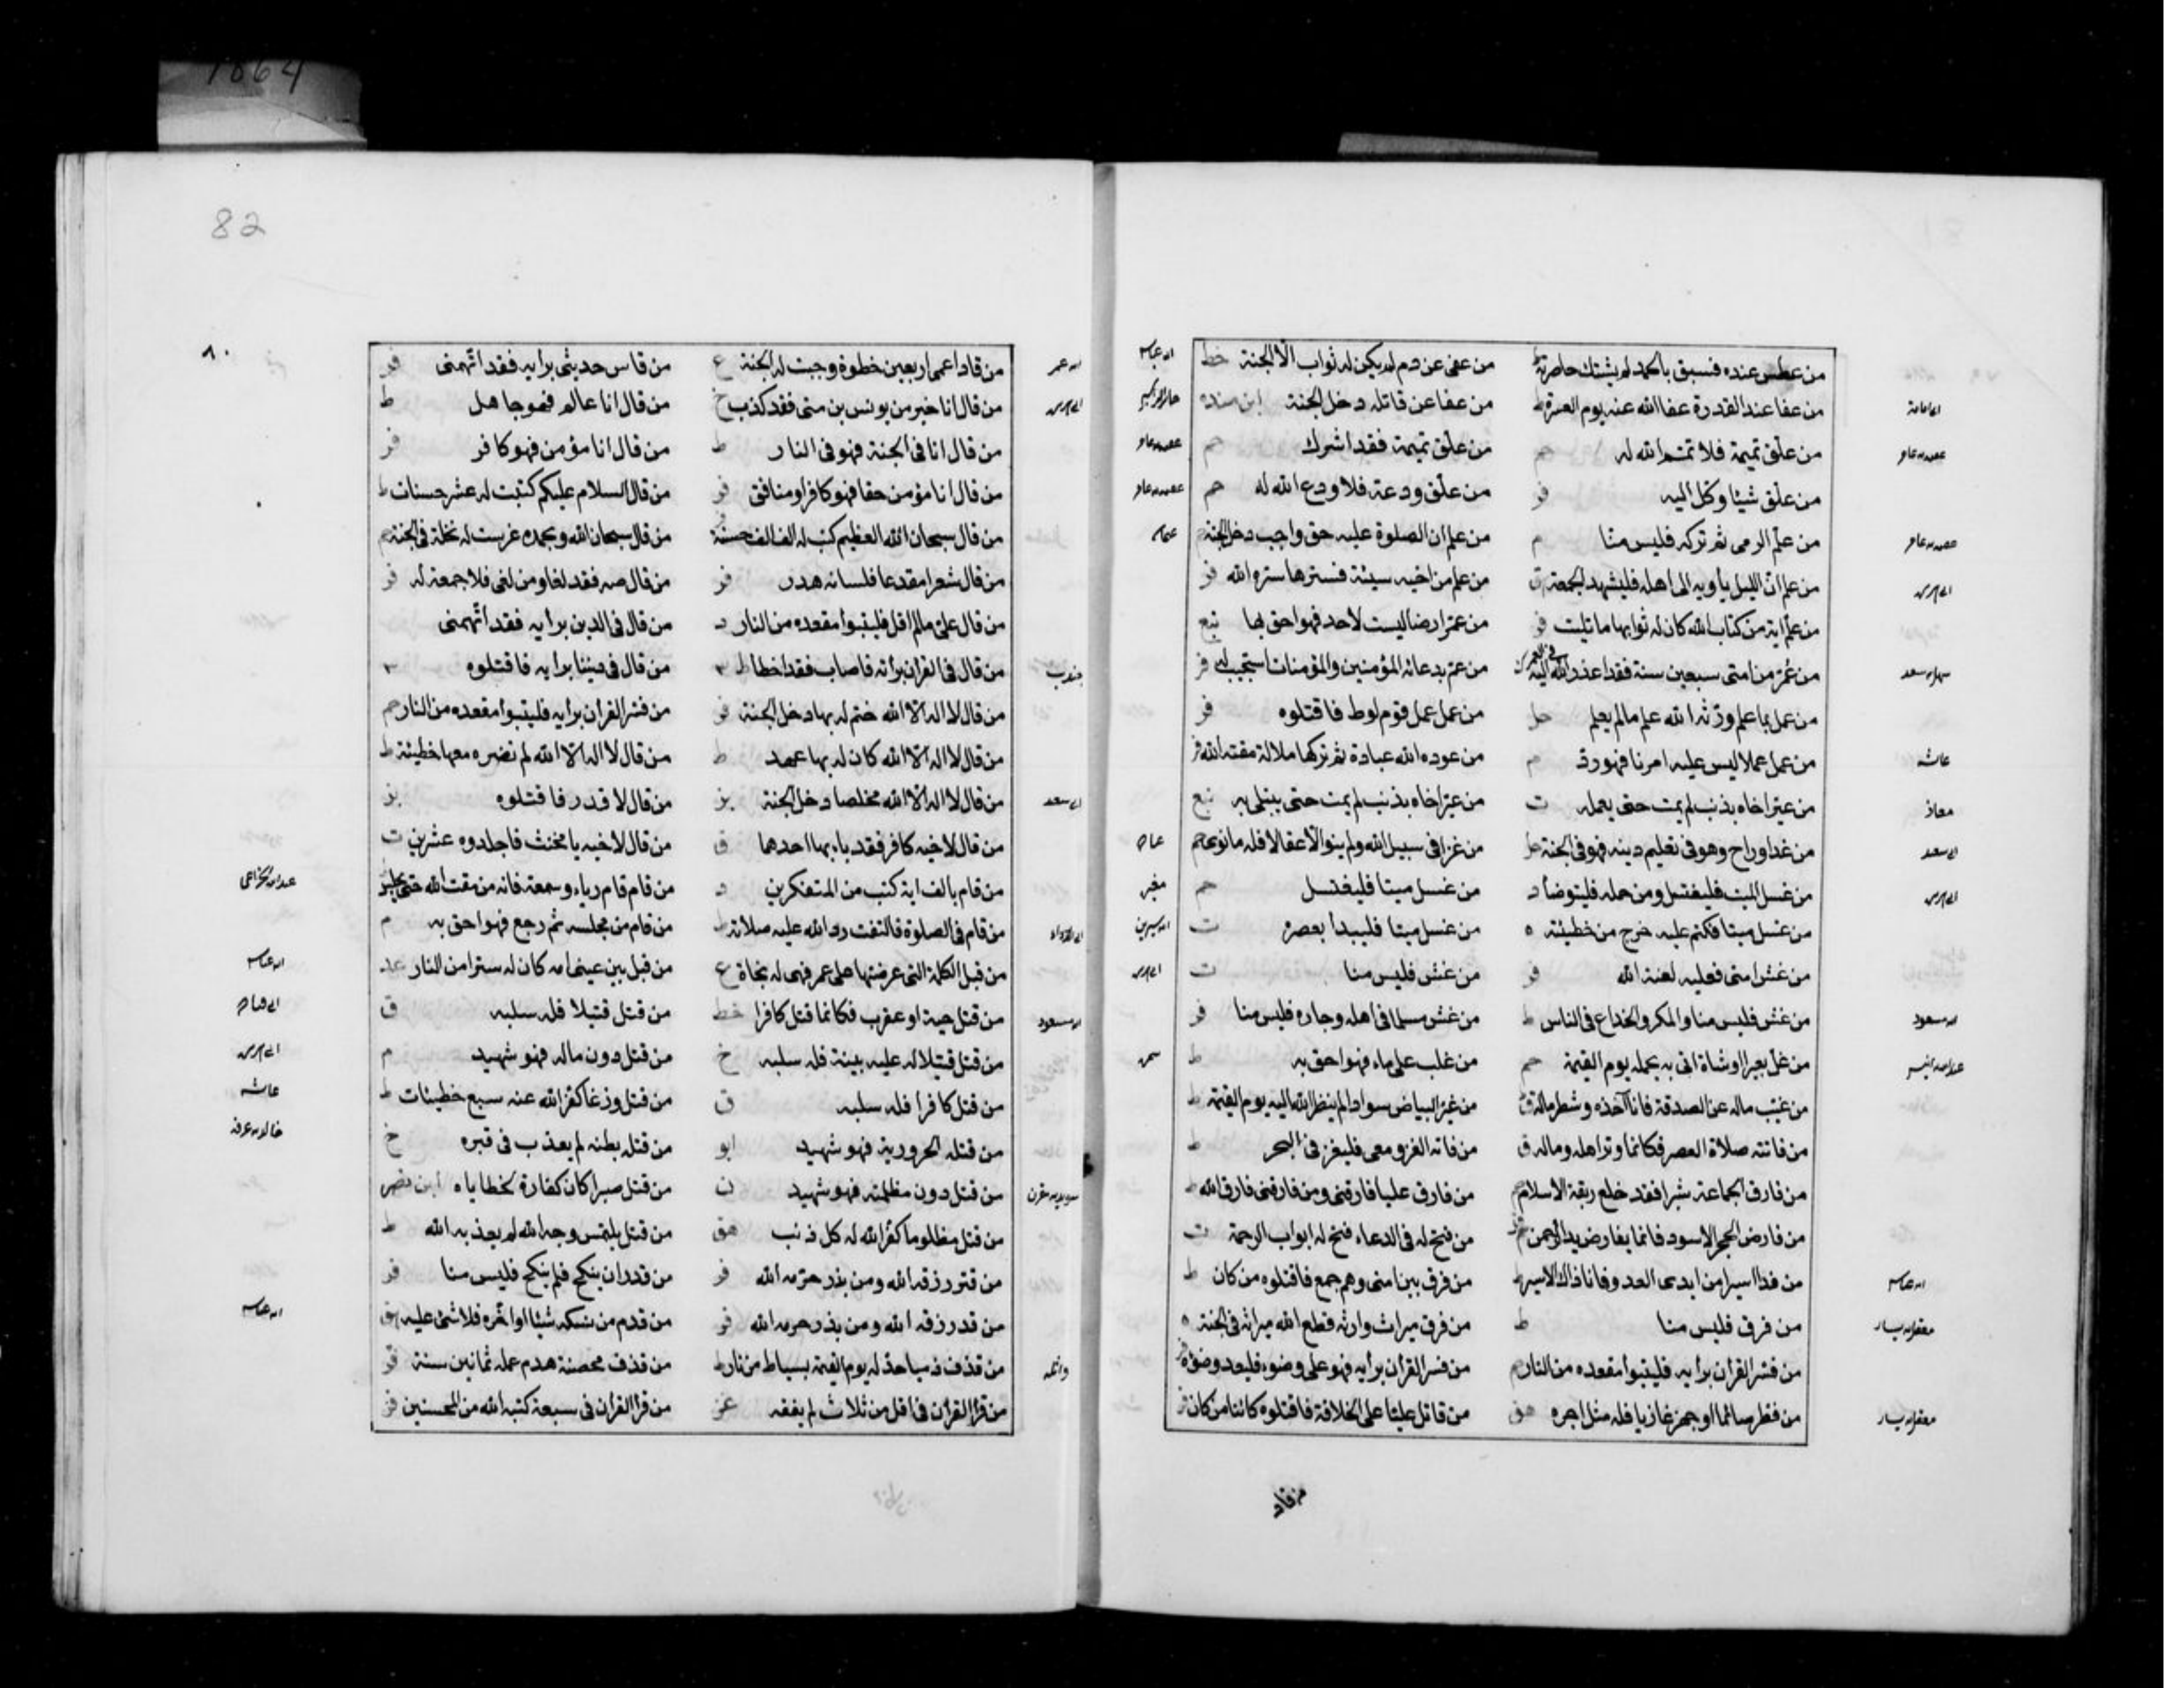 1064
من عطس عنده فسبق بالحمد لم يشتك خاصرته من عفى عن دم لم يكن له ثواب الا الجنة خط
من عفا عند القدرة عفا الله عنه يوم العسرة ط من عفا عن قاتله دخل الجنة ابن منده
من علق تميمة فلا تمم الله له حم من علق تميمة فقد اشرك حم
من علق شيئا وكل اليه فر من علق ودعة فلا ودع الله له حم
من علم الرمى ثم تركه فليس منا م من علم ان الصلوة عليه حق واجب دخل الجنة
من علم ان الليل يأويه الى اهله فليشهد الجمعة ق من علم من اخيه سيئة فسترها ستره الله فر
من علم اية من كتاب الله كان له ثوابها ما تليت فر من عمر ارضا ليست لاحد فهو احق بها
من عمر من امتى سبعين سنة فقد اعذر الله اليه فى العمر من عم بدعائه المؤمنين والمؤمنات استجيب له فر
من عمل بما علم ورثه الله علم ما لم يعلم حل من عمل عمل قوم لوط فاقتلوه فر
من عمل عملا ليس عليه امرنا فهو رد م من عوده الله عبادة ثم تركها ملالة مقته الله فر
من عير اخاه بذنب لم يمت حتى يعمله ت من عير اخاه بذنب لم يمت حتى يبتلى به
من غدا وراح وهو فى تعليم دينه فهو فى الجنة حل من غزا فى سبيل الله ولم ينو الا عقالا فله ما نوى حم
من غسل الميت فليغتسل ومن حمله فليتوضأ د من غسل ميتا فليغتسل حم
من غسل ميتا فكتم عليه خرج من خطيئته ه من غسل ميتا فليبدأ بعصره ت
من غش امتى فعليه لعنة الله فر من غش فليس منا ت
من غش فليس منا والمكر والخداع فى الناس ط من غش مسلما فى اهله وجاره فليس منا فر
من غل بعيرا او شاة اتى به يحمله يوم القيمة حم من غلب على ماء فهو احق به ط
من غيب ماله عن الصدقة فانا آخذه وشطر ماله ق من غير البياض سوادا لم ينظر الله اليه يوم القيمة ط
من فاتته صلاة العصر فكانما وتر اهله وماله ق من فاته الغزو معى فليغز فى البحر ط
من فارق الجماعة شبرا فقد خلع ربقة الاسلام حم من فارق عليا فارقنى ومن فارقنى فارق الله ط
من فارض الحجر الاسود فانما يفارض يد الرحمن من فتح له فى الدعاء فتح له ابواب الرحمة ت
من فدا اسيرا من ايدى العدو فانا ذاك الاسير ط من فرق بين امتى وهم جمع فاقتلوه من كان ط
من فرق فليس منا ط من فر من ميراث وارثه قطع الله ميراثه فى الجنة ه
من فسر القرآن برأيه فليتبوأ مقعده من النار من فسر القرآن برأيه فهو على وضوء فليعد وضوءه
من فطر صائما او جهز غازيا فله مثل اجره هق من قاتل عليا على الخلافة فاقتلوه كائنا من كان
ابى امامة
سهل بن سعد
عائشة
معاذ
ابى سعد
معقل بن يسار
معقل بن يسار
من قاد
82
٨٠
من قاد اعمى اربعين خطوة وجبت له الجنة ع من قاس حديثى برايه فقد اتهمنى فر
من قال انا خير من يونس بن متى فقد كذب خ من قال انا عالم فهو جاهل ط
من قال انا فى الجنة فهو فى النار ط من قال انا مؤمن فهو كافر فر
من قال انا مؤمن حقا فهو كافر او منافق فر من قال السلام عليكم كتبت له عشر حسنات ط
من قال سبحان الله العظيم كتب له الف الف حسنة من قال سبحان الله وبحمده غرست له نخلة فى الجنة
من قال شعرا مقدعا فلسانه هدر فر من قال صه فقد لغا ومن لغى فلا جمعة له فر
من قال على ما لم اقل فليتبوأ مقعده من النار د من قال فى الدين برأيه فقد اتهمنى
من قال فى القرآن برأيه فاصاب فقد اخطا ط من قال فى ديننا برأيه فاقتلوه
من قال لا اله الا الله ختم له بها دخل الجنة فر من فسر القرآن برايه فليتبوا مقعده من النار حم
من قال لا اله الا الله كان له بها عهد ط من قال لا اله الا الله لم تضره معها خطيئة ط
من قال لا اله الا الله مخلصا دخل الجنة بز من قال لا قدر فاقتلوه بز
من قال لاخيه كافر فقد باء بها احدهما ق من قال لاخيه يا مخنث فاجلدوه عشرين ت
من قام بالف اية كتب من المتفكرين د من قام مقام رياء وسمعة فانه من مقت الله حتى يجلس
من قام فى الصلوة فالتفت رد الله عليه صلاته ط من قام من مجلسه ثم رجع فهو احق به م
من قبل الكلمة التى عرضتها على عمر فهى له نجاة ع من قبل بين عينى امه كان له سترا من النار عد
من قتل حية او عقرب فكانما قتل كافرا خط من قتل قتيلا فله سلبه ق
من قتل قتيلا له عليه بينة فله سلبه خ من قتل دون ماله فهو شهيد م
من قتل كافرا فله سلبه ق من قتل وزغا كفر الله عنه سبع خطيئات ط
من قتله الحرورية فهو شهيد ابو من قتله بطنه لم يعذب فى قبره خ
من قتل دون مظلمته فهو شهيد ن من قتل صبرا كان كفارة لخطاياه
من قتل مظلوما كفر الله له كل ذنب هق من قتل يلتمس وجه الله لم يعذبه الله ط
من قتر رزقه الله ومن بذر حرمه الله فر من قدر ان ينكح فلم ينكح فليس منا فر
من قدر رزقه الله ومن بذر حرمه الله فر من قدم من نسكه شيئا او اخره فلا شئ عليه هق
من قذف ذميا حد له يوم القيمة بسياط من نار ط من قذف محصنة هدم عمله ثمانين سنة فر
من قرأ القرآن فى اقل من ثلاث لم يفقه من قرأ القرآن فى سبعة كتبه الله من المحسنين فر
ابن مسعود
سويد بن مقرن
واثلة
ابن عباس
عائشة
خالد بن عرفة
ابن عباس